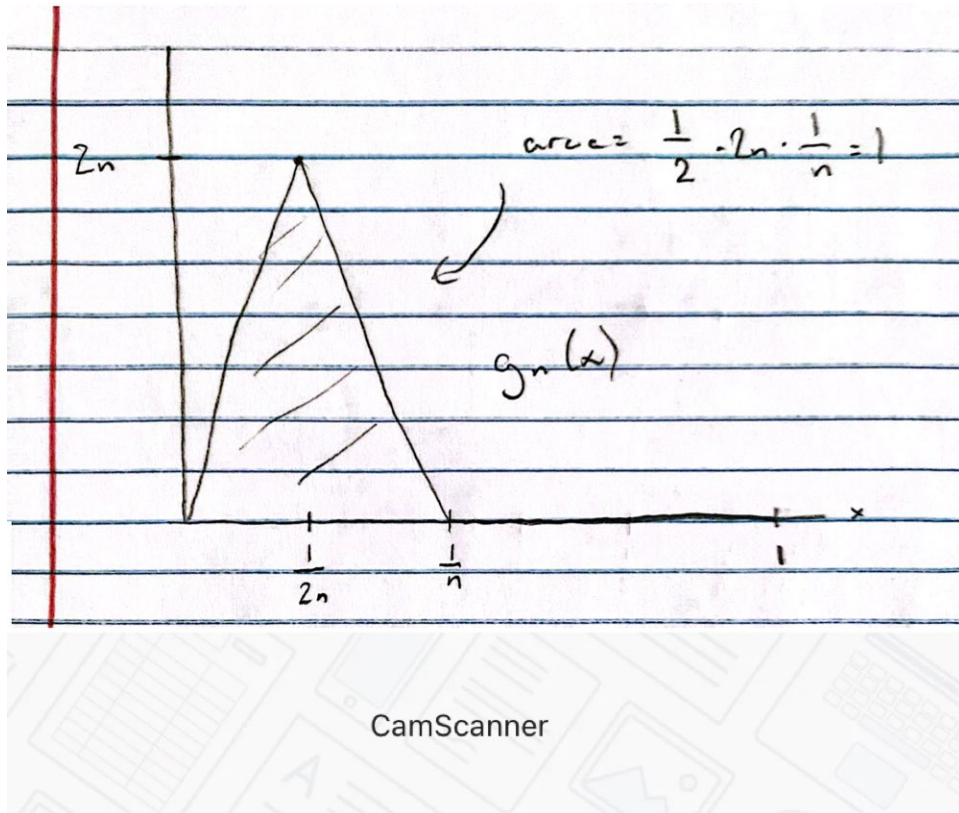 2n
area = 1/2 · 2n · 1/n = 1
gₙ(x)
x
1/2n
1/n
1
CamScanner